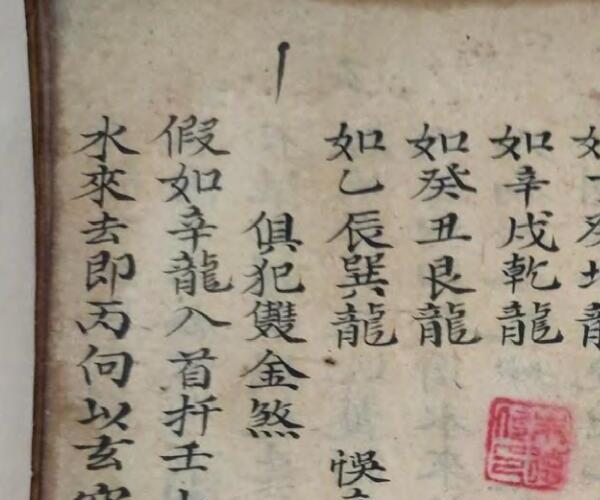 如辛戌乾龍
如癸丑艮龍
如乙辰巽龍 悞
俱犯雙金煞
假如辛龍入首扦壬
水來去即丙向以玄